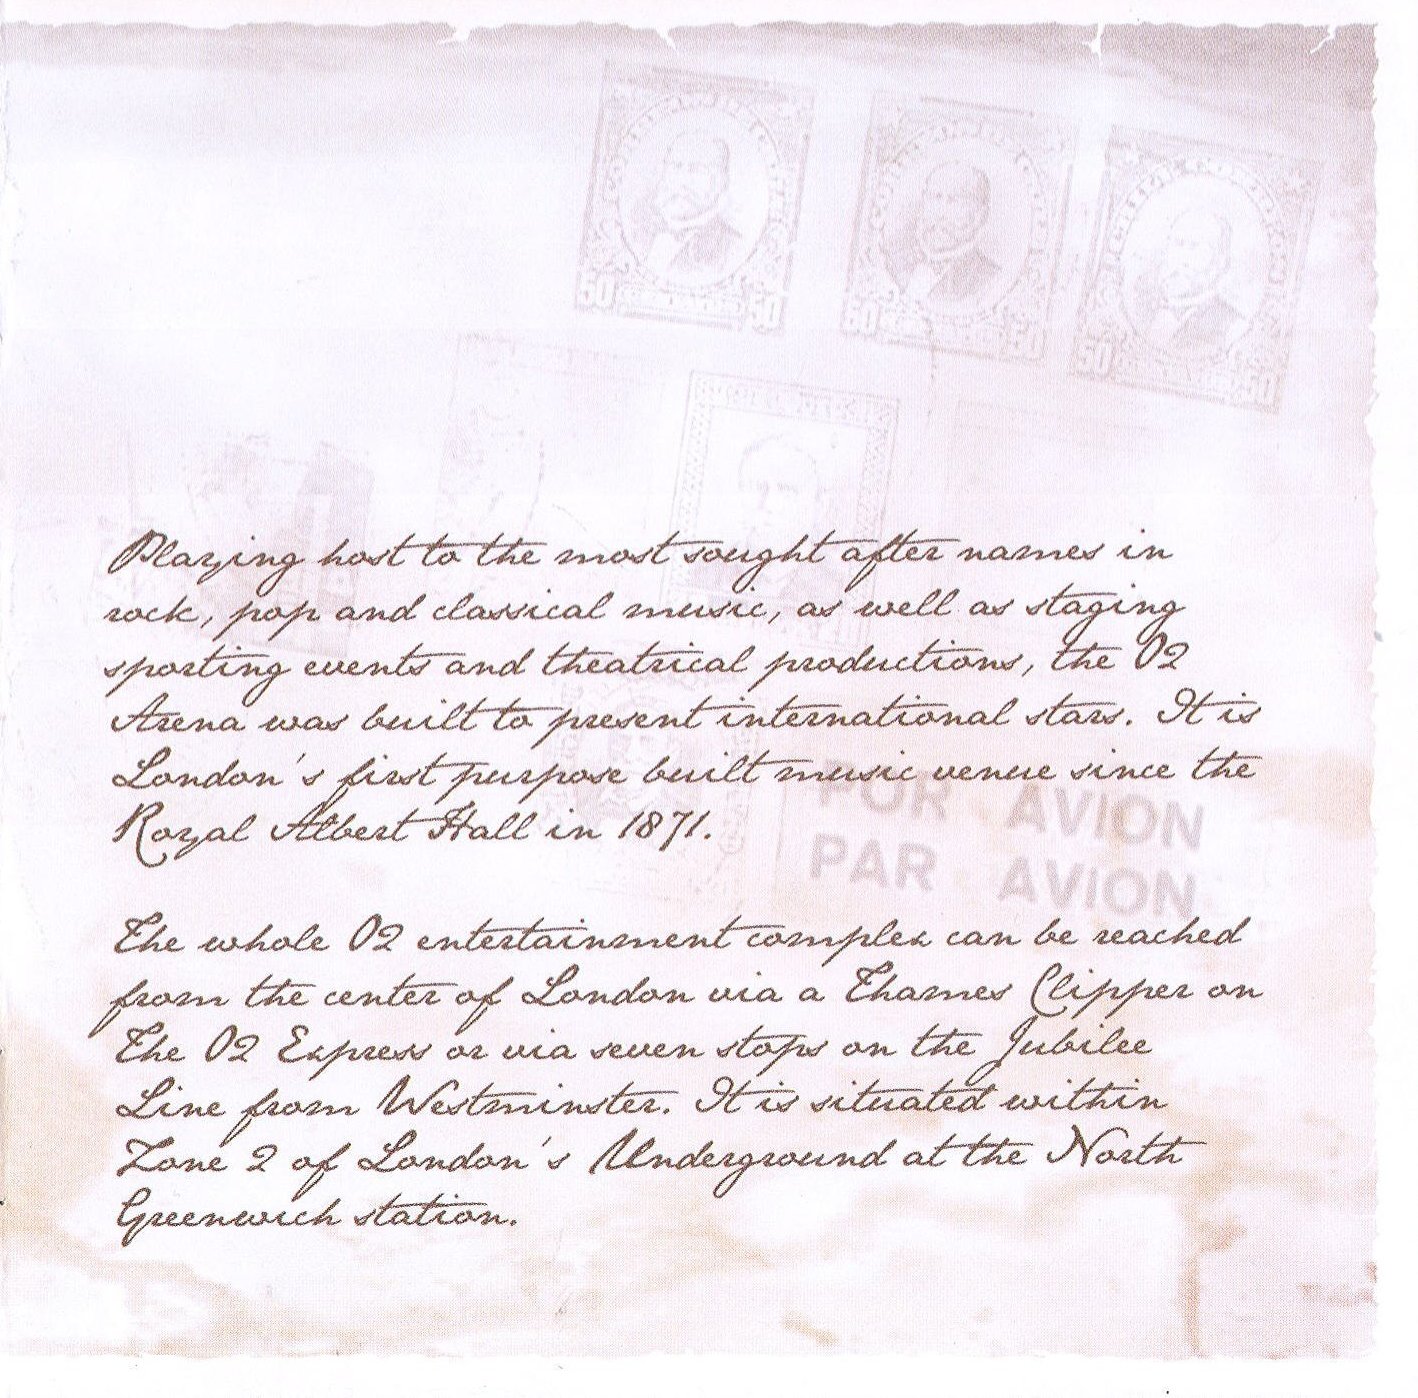 50 50
50
50 50
POR AVION
PAR AVION
Playing host to the most sought after names in
rock, pop and classical music, as well as staging
sporting events and theatrical productions, the O2
Arena was built to present international stars. It is
London's first purpose built music venue since the
Royal Albert Hall in 1871.
The whole O2 entertainment complex can be reached
from the center of London via a Thames Clipper on
The O2 Express or via seven stops on the Jubilee
Line from Westminster. It is situated within
Zone 2 of London's Underground at the North
Greenwich station.